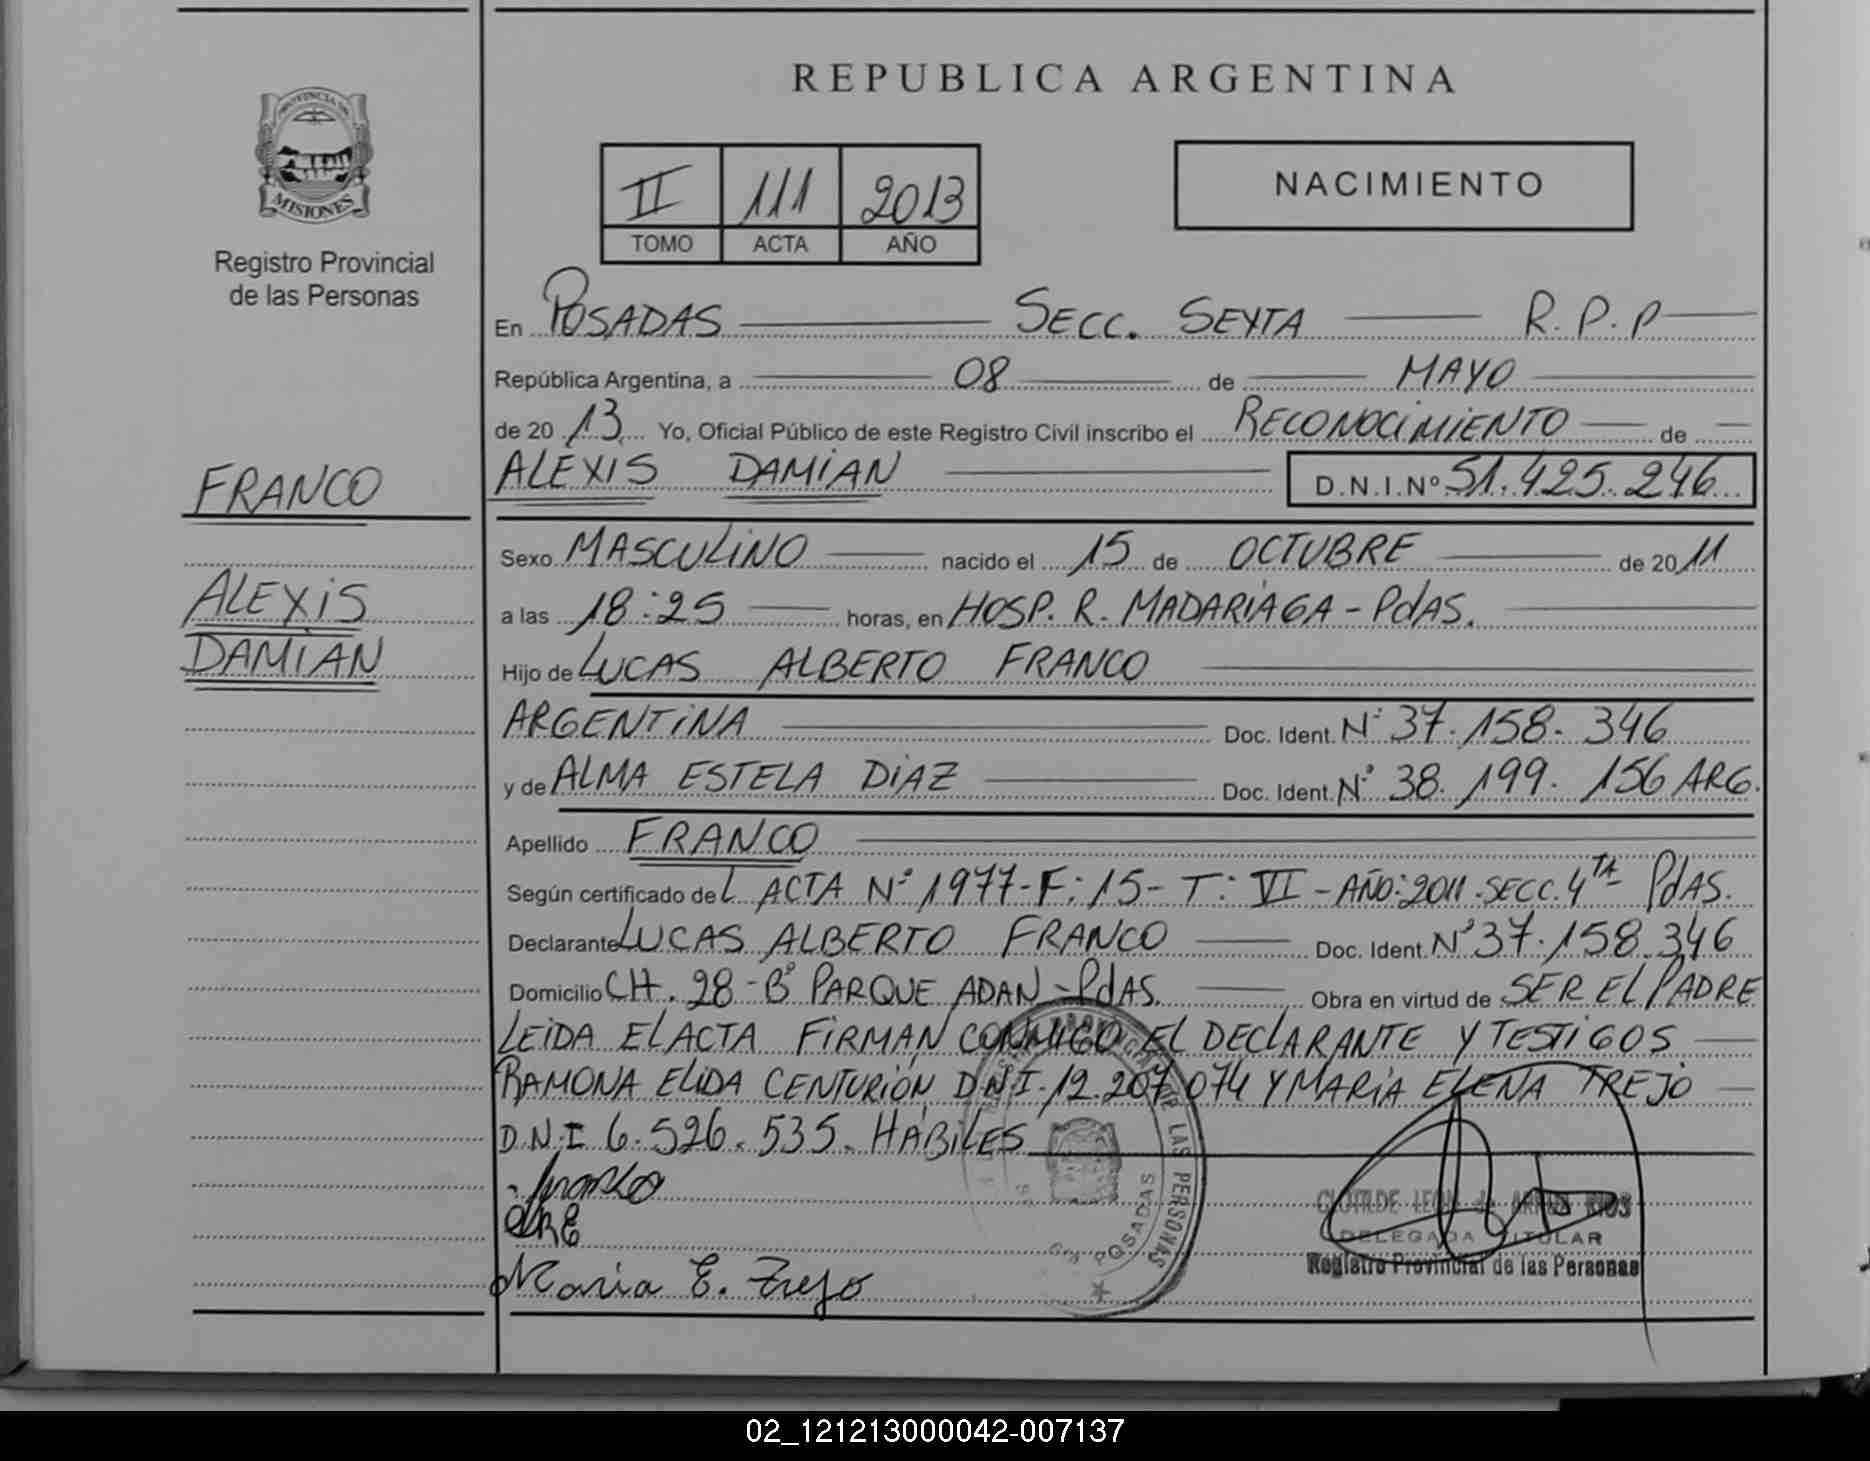 REPUBLICA ARGENTINA
PROVINCIA DE
MISIONES
Registro Provincial
de las Personas
II 111 2013
TOMO ACTA AÑO
NACIMIENTO
En POSADAS SECC. SEXTA R.P.P
República Argentina, a 08 de MAYO
de 20 13 Yo, Oficial Público de este Registro Civil inscribo el RECONOCIMIENTO de
FRANCO
ALEXIS DAMIAN D.N.I.Nº 51.425.246
Sexo MASCULINO nacido el 15 de OCTUBRE de 20 11
ALEXIS
DAMIAN
a las 18:25 horas, en HOSP. R. MADARIAGA - PdAS.
Hijo de LUCAS ALBERTO FRANCO
ARGENTINA Doc. Ident. Nº 37.158.346
y de ALMA ESTELA DIAZ Doc. Ident. Nº 38.199.156 ARG.
Apellido FRANCO
Según certificado del ACTA Nº 1977-F:15-T:VI-AÑO:2011.SECC.4TA PdAS.
Declarante LUCAS ALBERTO FRANCO Doc. Ident. Nº 37.158.346
Domicilio CH. 28 - Bº PARQUE ADAN - PdAS. Obra en virtud de SER EL PADRE
LEIDA EL ACTA FIRMAN CONMIGO EL DECLARANTE Y TESTIGOS
RAMONA ELIDA CENTURIÓN D.N.I. 12.207.074 Y MARIA ELENA TREJO
D.N.I 6.526.535. HABILES
Franco
Maria E. Trejo
LAS PERSONAS
POSADAS
CLOTILDE LEON de RIOS
DELEGADA TITULAR
Registro Provincial de las Personas
02_121213000042-007137